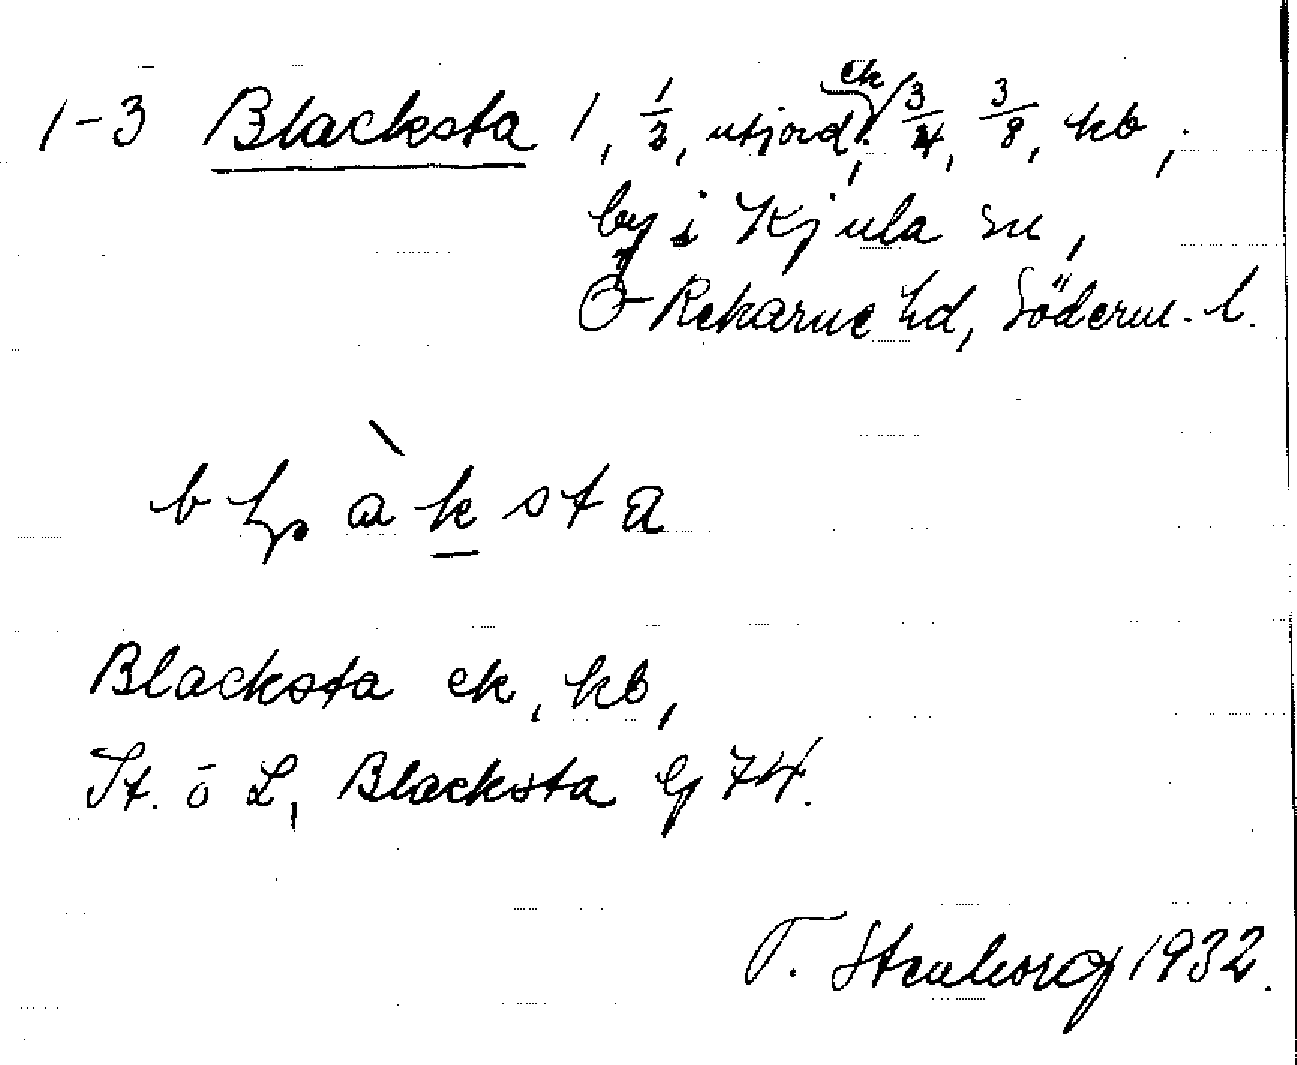 1-3 Blacksta 1, 1/3, utjord, ek 3/4, 3/8, kb,
by i Kjula sn,
Ö Rekarne hd, Söderm. l.
blàksta
Blacksta ek, kb,
St. o L, Blacksta Eg 74.
T. Stenborg 1932.